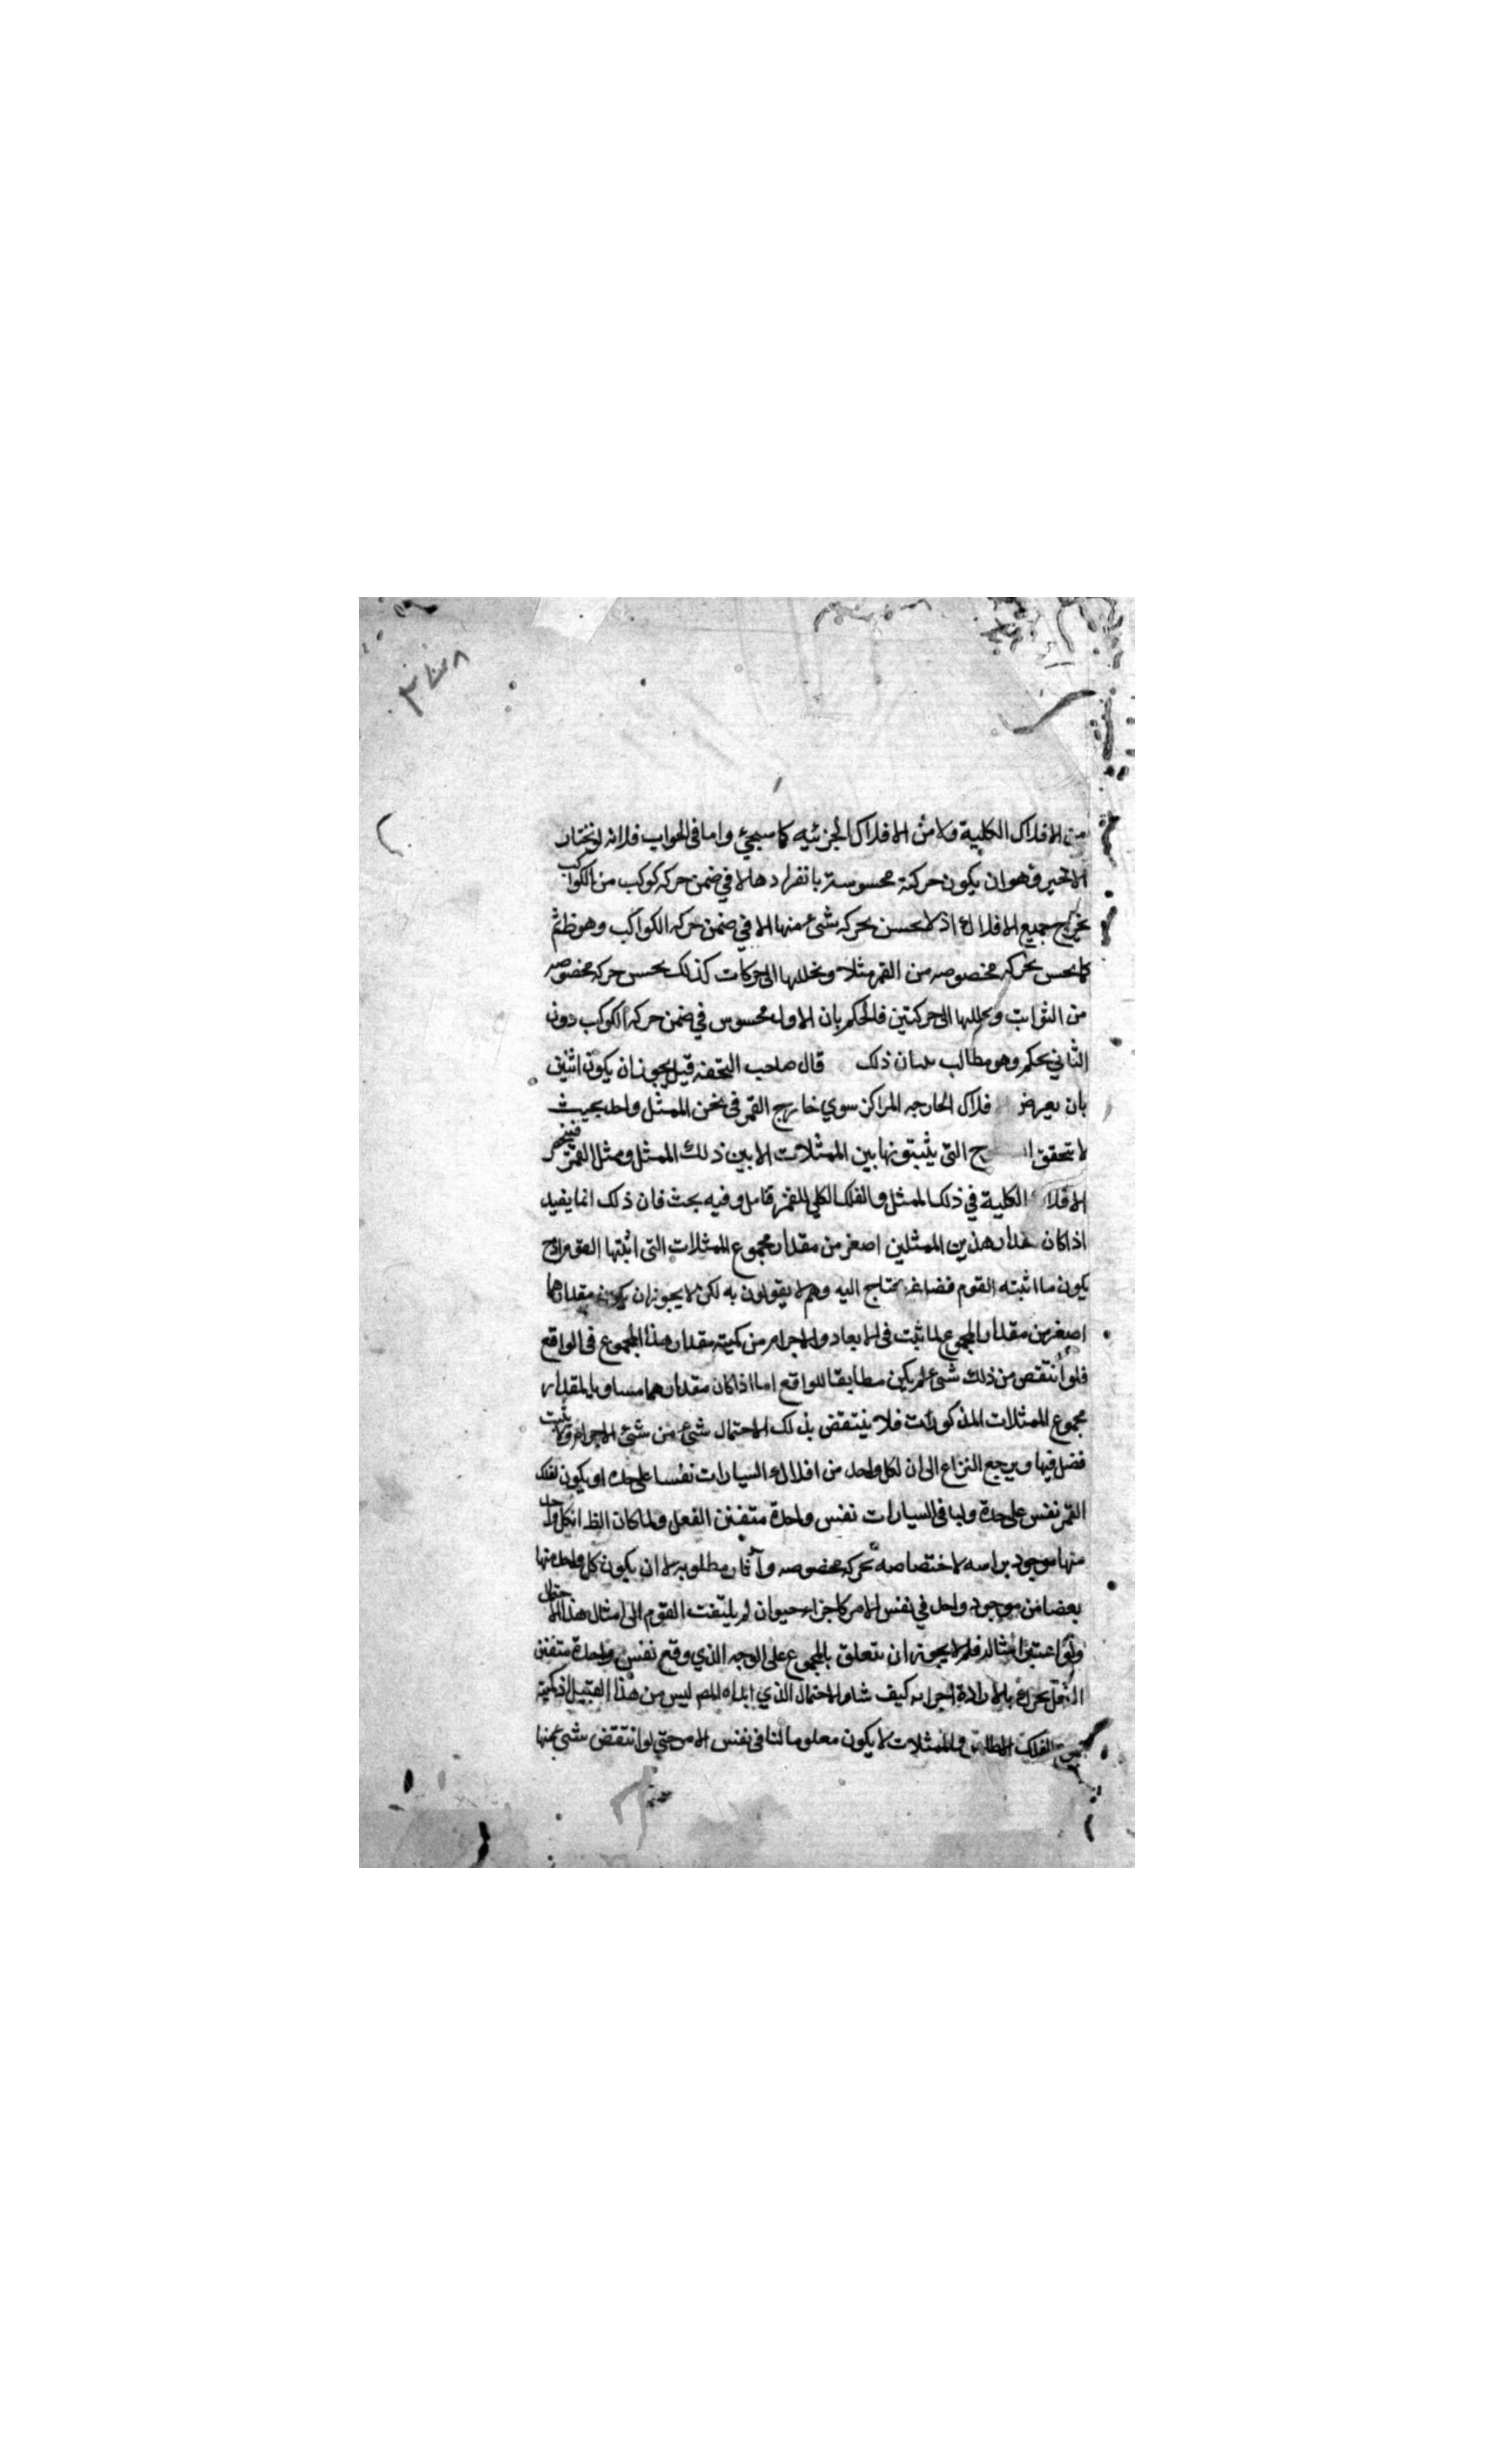 من الافلاك الكلية ولا من الافلاك الجزئيه كما سيجئ واما فى الجواب فلانه لو نختار
الاخير وهو ان يكون حركته محسوسة بانفرادها لا في ضمن حركه كوكب من الكواكب
يخرج جميع الافلاك اذ لا يحس بحركه شئ منها الا في ضمن حركه الكواكب وهو ظ ثم
كما يحس بحركه مخصوصه من القمر مثلا ونحللها الى حركات كذلك يحس حركه مخصوصه
من الثوابت ونحللها الى حركتين فالحكم بان الاول محسوس في ضمن حركه الكوكب دون
الثاني تحكم وهو مطالب ببيان ذلك قال صاحب التحفه قيل يجوز ان يكون اثنين
بان يعرض فلاك الخارجه المراكز سوي خارج القمر فى ثخن الممثل واحد بحيث
لا يتحقق ج التى يثبتونها بين الممثلات الا بين ذلك الممثل وممثل القمر فينحصر
الافلاك الكلية في ذلك الممثل والفلك الكلي للقمر تامل وفيه بحث فان ذلك انما يفيد
اذا كان مقدار هذين الممثلين اصغر من مقدار مجموع الممثلات التى اثبتها القوم اذ ح
يكون ما اثبته القوم فضلا غير محتاج اليه وهم لا يقولون به لكن لا يجوز ان يكون مقدارهما
اصغر من مقدار المجموع لما ثبت فى الابعاد والاجرام من كميته مقدار هذا المجموع فى الواقع
فلو انتقص من ذلك شئ لم يكن مطابقا للواقع اما اذا كان مقدارهما مساويا لمقدار
مجموع الممثلات المذكورات فلا ينتقض بذلك الاحتمال شئ من شئ الاجرام ولا يثبت
فضل فيها ويرجع النزاع الى ان لكل واحد من افلاك السيارات نفسا على حده او يكون لفلك
القمر نفس على حدة ولباقى السيارات نفس واحدة متفنن الفعل ولما كان الظ ان كل واحد
منها موجود براسه لاختصاصه بحركه مخصوصه وآثار مطلوبه لا ان يكون كل واحد منها
بعضا من موجود واحد في نفس الامر كاجزاء حيوان لم يلتفت القوم الى امثال هذا الاحتمال
ولو اعتبر امثاله فلم لا يجوز ان يتعلق بالمجموع على الوجه الذي وقع نفس واحدة متفنن
الفعل يحرك بالارادة اجرامه كيف شاء والاحتمال الذي ابداه المص ليس من هذا القبيل اذ كمية
الفلك والممثلات لا يكون معلوما لنا فى نفس الامر حتى لو انتقض شئ منها